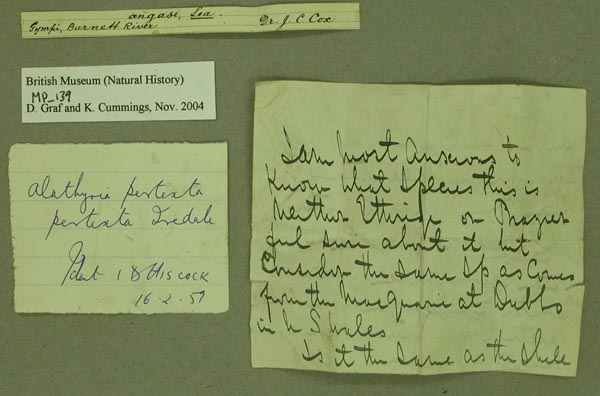 angasi, Lea.
Gympi, Burnett River Dr. J. C. Cox
British Museum (Natural History)
MP_139
D. Graf and K. Cummings, Nov. 2004
Alathyria pertexta
pertexta Iredale
Ident I D Hiscock
16-2-51
I am most Anxious to
Know what Species this is
Neither Ettheridge or Brazier
feel sure about it but
Consider the same Sp as Comes
from the Macquarie at Dubbo
in N S Wales
Is it the same as the Shell